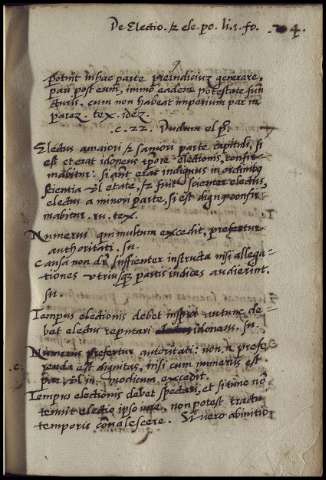 De Electio. & ele. po. li. 1. fo. 24.
potuit in hac parte preiudiciū generare,
pari post eum, immo eadem potestate fun
cturis. cum non habeat imperium par in
parem. tex. idez.
c. 22. Dudum el p.
Electus a maiori & saniori parte capituli, si
est et erat idoneus tpore electionis, confir
mabitur: si aut erat indignus in ordinibz
scientia vl etate, & fuit scienter electus,
electus a minori parte, si est dignus confir
mabitur. su. tex.
Numerus qui multum excedit, prefertur
authoritati. su.
Causa non dr sufficienter instructa nisi allega
tiones utriusque partis iudices audierint.
su.
Tempus electionis debet inspici utrum de
bet electus reputari idoneus. su.
Numerus prefertur autoritati: non n. prefe
renda est dignitas, nisi cum numerus est
par, vl in modicum excedit.
Tempus electionis debet spectari, et si tunc nō
tenuit electio ipso iure, non potest tractu
temporis conualescere. Si uero ab initio